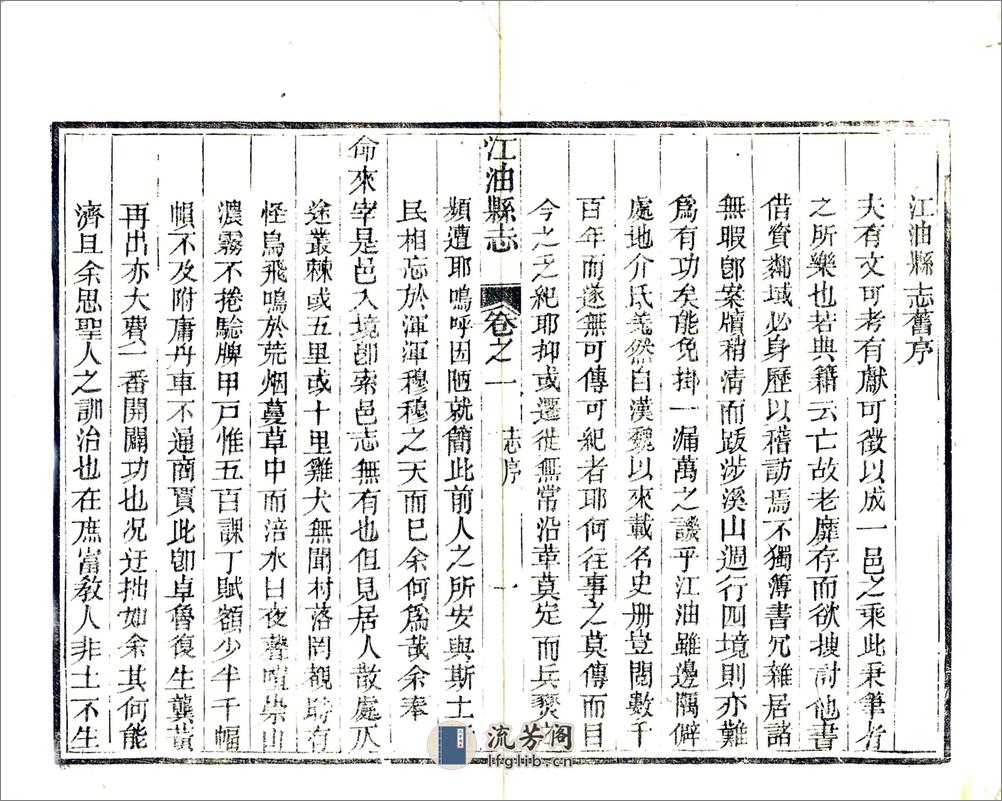 江油縣志舊序
夫有文可考有獻可徵以成一邑之乘此秉筆者
之所樂也若典籍云亡故老靡存而欲搜討他書
借資鄰域必身歷以稽訪焉不獨簿書冗雜居諸
無暇卽案牘稍清而跋涉溪山週行四境則亦難
爲有功矣能免掛一漏萬之譏乎江油雖邊隅僻
處地介氐羌然自漢魏以來載名史册豈閱數千
百年而遂無可傳可紀者耶何往事之莫傳而目
今之乏紀耶抑或遷徙無常沿革莫定而兵燹
江油縣志 卷之一 志序 一
頻遭耶嗚呼因陋就簡此前人之所安與斯士
民相忘於渾渾穆穆之天而已余何爲哉余奉
命來宰是邑入境卽索邑志無有也但見居人散處仄
途叢棘或五里或十里雞犬無聞村落罔覩時有
怪鳥飛鳴於荒烟蔓草中而涪水日夜聲喧崇山
濃霧不捲驗牌甲戸惟五百課丁賦額少半千幅
𢄙不及附庸丹車不通商賈此卽卓魯復生龔黃
再出亦大費一番開闢功也况迂拙如余其何能
濟且余思聖人之訓治也在庶富教人非土不生
流芳阁
lfglib.cn